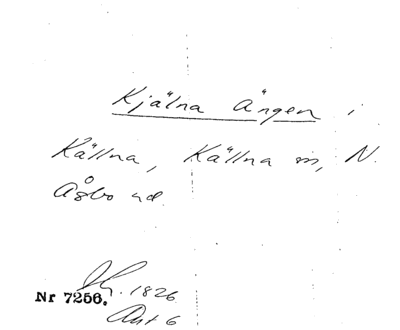 Kjälna Ängen i
Källna, Källna sn, N.
Åsbo hd.
1826
Nr 7256.
Akt 6